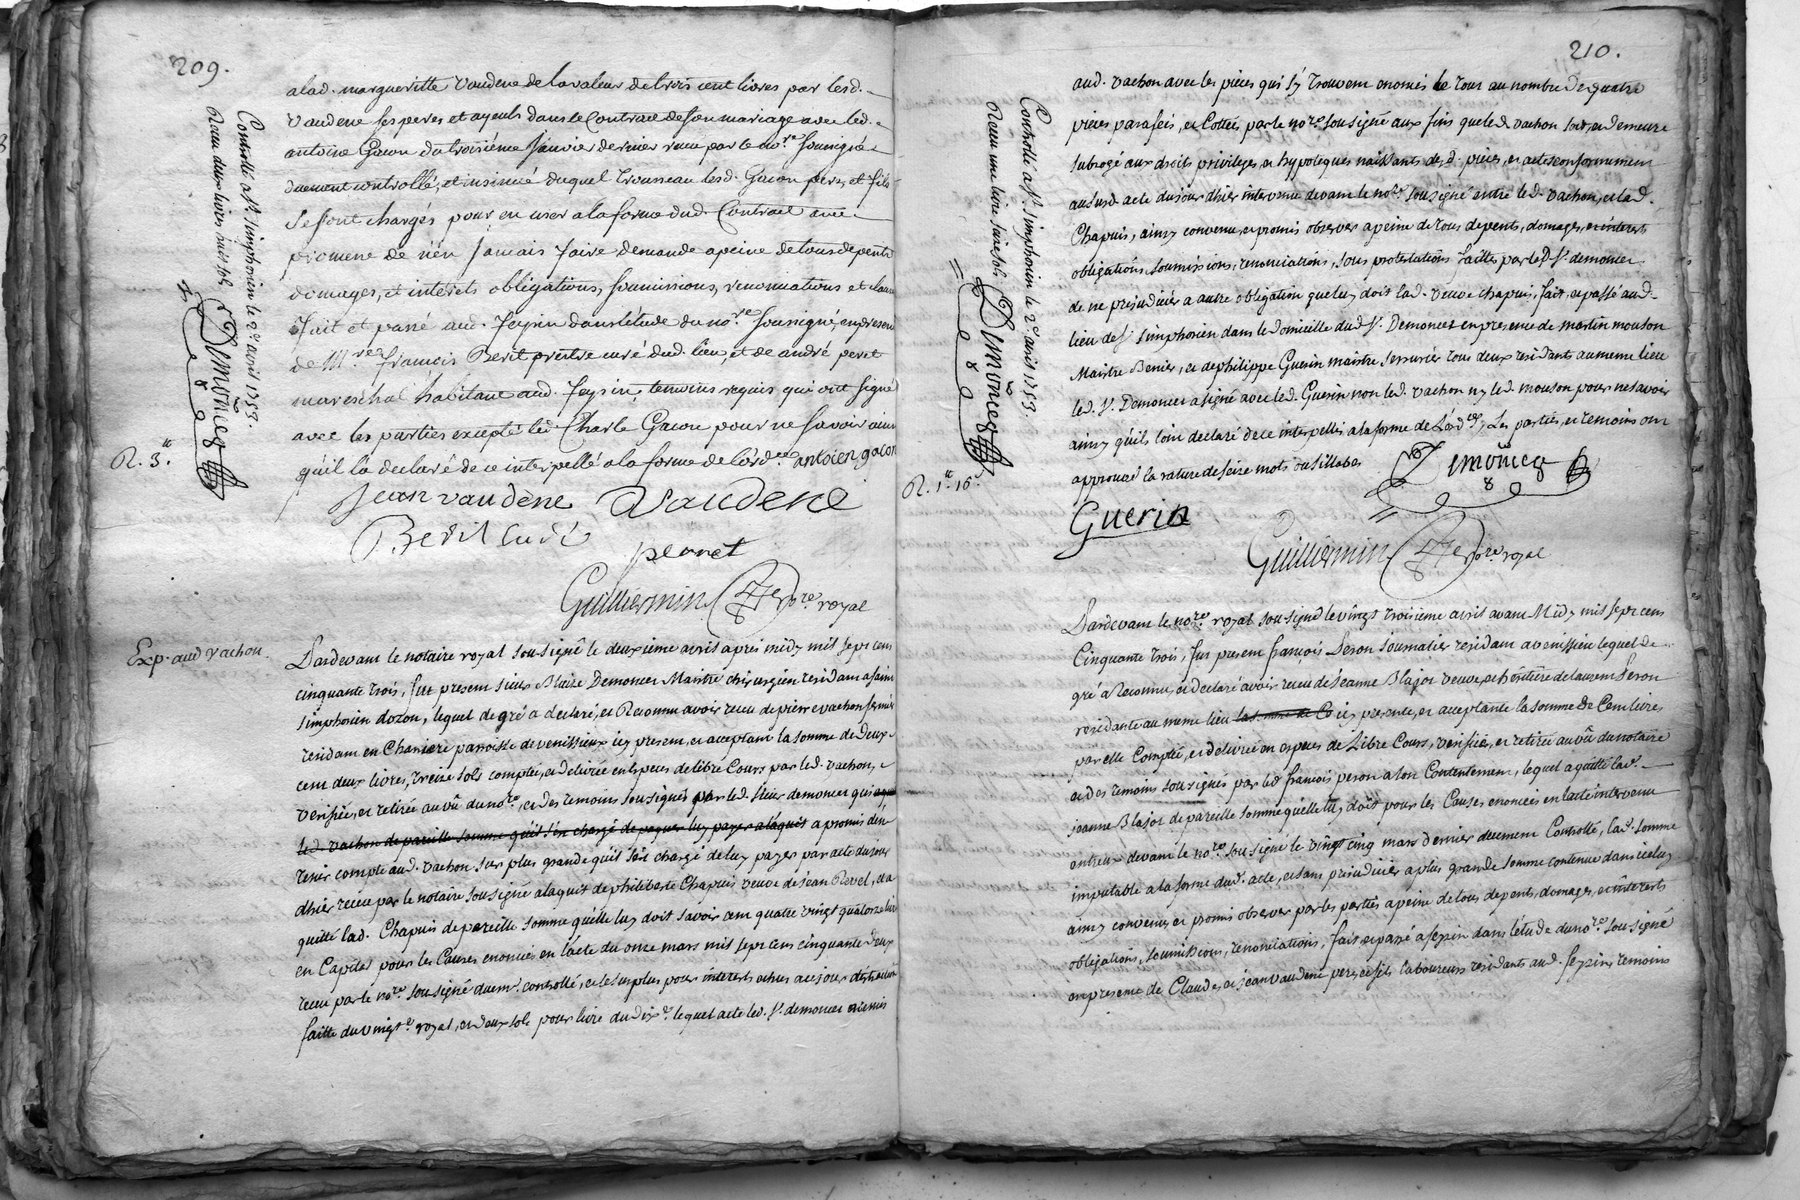 209.
alad. margueritte vaudene de la valeur de trois cent livres par lesd.
vaudene ses peres et ayeuls dans le Contract de son mariage avec led.
antoine Gacon du troisiéme janvier dernier receu par le no.re sousigné
duement controllé, et insinué duquel trousseau lesd. Gacon pere, et fils
se sont chargés pour en user a la forme dud. Contract avec
promesse de n'en jamais faire demande a peine de tous depents
domages, et interets obligations, soumissions, renonciations et clauses
fait et passé aud. feysin dans l'étude du no.re sousigné, en presence
de M.re françois Berit prêtre curé dud. lieu, et de andré peret
mareschal habitant aud. feysin, temoins requis qui ont signé
avec les parties excepté led. Charle Gacon pour ne savoir ainsi
qu'il l'a declaré de ce interpellé a la forme de l'ord.ce antoien gacon
jean vaudene vaudene
Berit curé
perret
Guilliermin no.re royal
Controllé a S.t simphorien le 2.e avril 1753.
Receu deux livres six sols
Demoncez
R. 3.tt
Exp. aud vachon
Pardevant le notaire royal sousigné le deuxieme avril apres midy mil sept cent
cinquante trois, fut present sieur Blaise Demoncez Maitre chirurgien residant a saint
simphorien dozon, lequel de gré a declaré, et Reconnu avoir receu de pierre vachon fermier
residant en Charriere parroisse de venissieux icy present, et acceptant la somme de deux
cent deux livres, treize sols comptée, et delivrée en especes de libre Cours par led. vachon,
verifiée, et retirée au vû du no.re, et des temoins sousignés par led. sieur demoncez qui a quitté
led. vachon de pareille somme qu'il s'en chargé de payer luy payer a l'aquit a promis d'en
tenir compte aud. vachon sur plus grande qu'il s'est chargé de luy payer par acte du jour
dhier receu par le notaire sousigné a laquit de philiberte Chapuis veuve de jean Revel, et a
quitté lad. Chapuis de pareille somme qu'elle luy doit savoir cent quatre vingt quatorze livres
en Capital pour les Causes enoncées en l'acte du onze mars mil sept cent cinquante deux
receu par le no.re sousigné duem.t controllé, et le surplus pour interets echus a ce jour distraction
faitte du vingt.e royal, et deux sols pour livre du dix.e lequel acte led. s.r demoncez a remis
210.
aud. vachon avec les pieces qui s'y trouvent enoncés le tout au nombre de quatre
pieces paraféés, et Cottées par le no.re sousigné aux fins que led. vachon soit, et demeure
subrogé aux droits privileges, et hypoteques naissants desd. pieces, et actes conformement
au susd. acte du jour dhier intervenu devant le no.re sousigné entre led. vachon, et lad.
Chapuis, ainsy convenu, et promis observer a peine de tous depents, domages, et interets
obligations, soumissions, renonciations, sous protestations faittes par led. s.r demoncez
de ne prejudicier a autre obligation que luy doit lad. veuve chapuis, fait, et passé aud.
lieu de s.t simphorien dans le domicille dud. s.r Demoncez en presence de martin mouson
Maistre Benier, et de philippe Guerin maistre serrurier tous deux residants au meme lieu
led. s.r Demoncez a signé avec led. Guerin non led. vachon ny led. mouson pour ne savoir
ainsy qu'ils l'ont declaré de ce interpellés a la forme de l'ord.ce, Les parties, et temoins ont
approuvé la rature de seize mots ou sillabes
Demoncez
Guerin
Guilliermin no.re royal
Controllé a S.t simphorien le 2.e avril 1753.
Receu une livre seize sols
Demoncez
R. 1.tt 16.s
Pardevant le no.re royal sousigné le vingt troisieme avril avant Midy mil sept cent
Cinquante trois, fut present françois Peron journalier residant a venissieu lequel de
gré a Reconnu, et declaré avoir receu de jeanne Blajot veuve, et heritiere de laurent Peron
residante au meme lieu la somme de Ce icy presente, et acceptante la somme de Cent livres
par elle Comptée, et delivrée en especes de Libre Cours, verifiée, et retirée au vû du notaire
et des temoins sousignés par led. françois peron a son Contentement, lequel a quitté lad.
jeanne Blajot de pareille somme qu'elle luy doit pour les Causes enoncées en l'acte intervenu
entreux devant le no.re sousigné le vingt cinq mars dernier deuement Controllé, lad. somme
imputable a la forme dud. acte, et sans prejudicier a plus grande somme contenue dans icelui
ainsy convenu, et promis observer par les parties a peine de tous depents, domages, et interets
obligations, soumissions, renonciations, fait et passé a feysin dans l'étude du no.re sousigné
en presence de Claude, et jean vaudene pere, et fils laboureurs residants aud. feysin, temoins